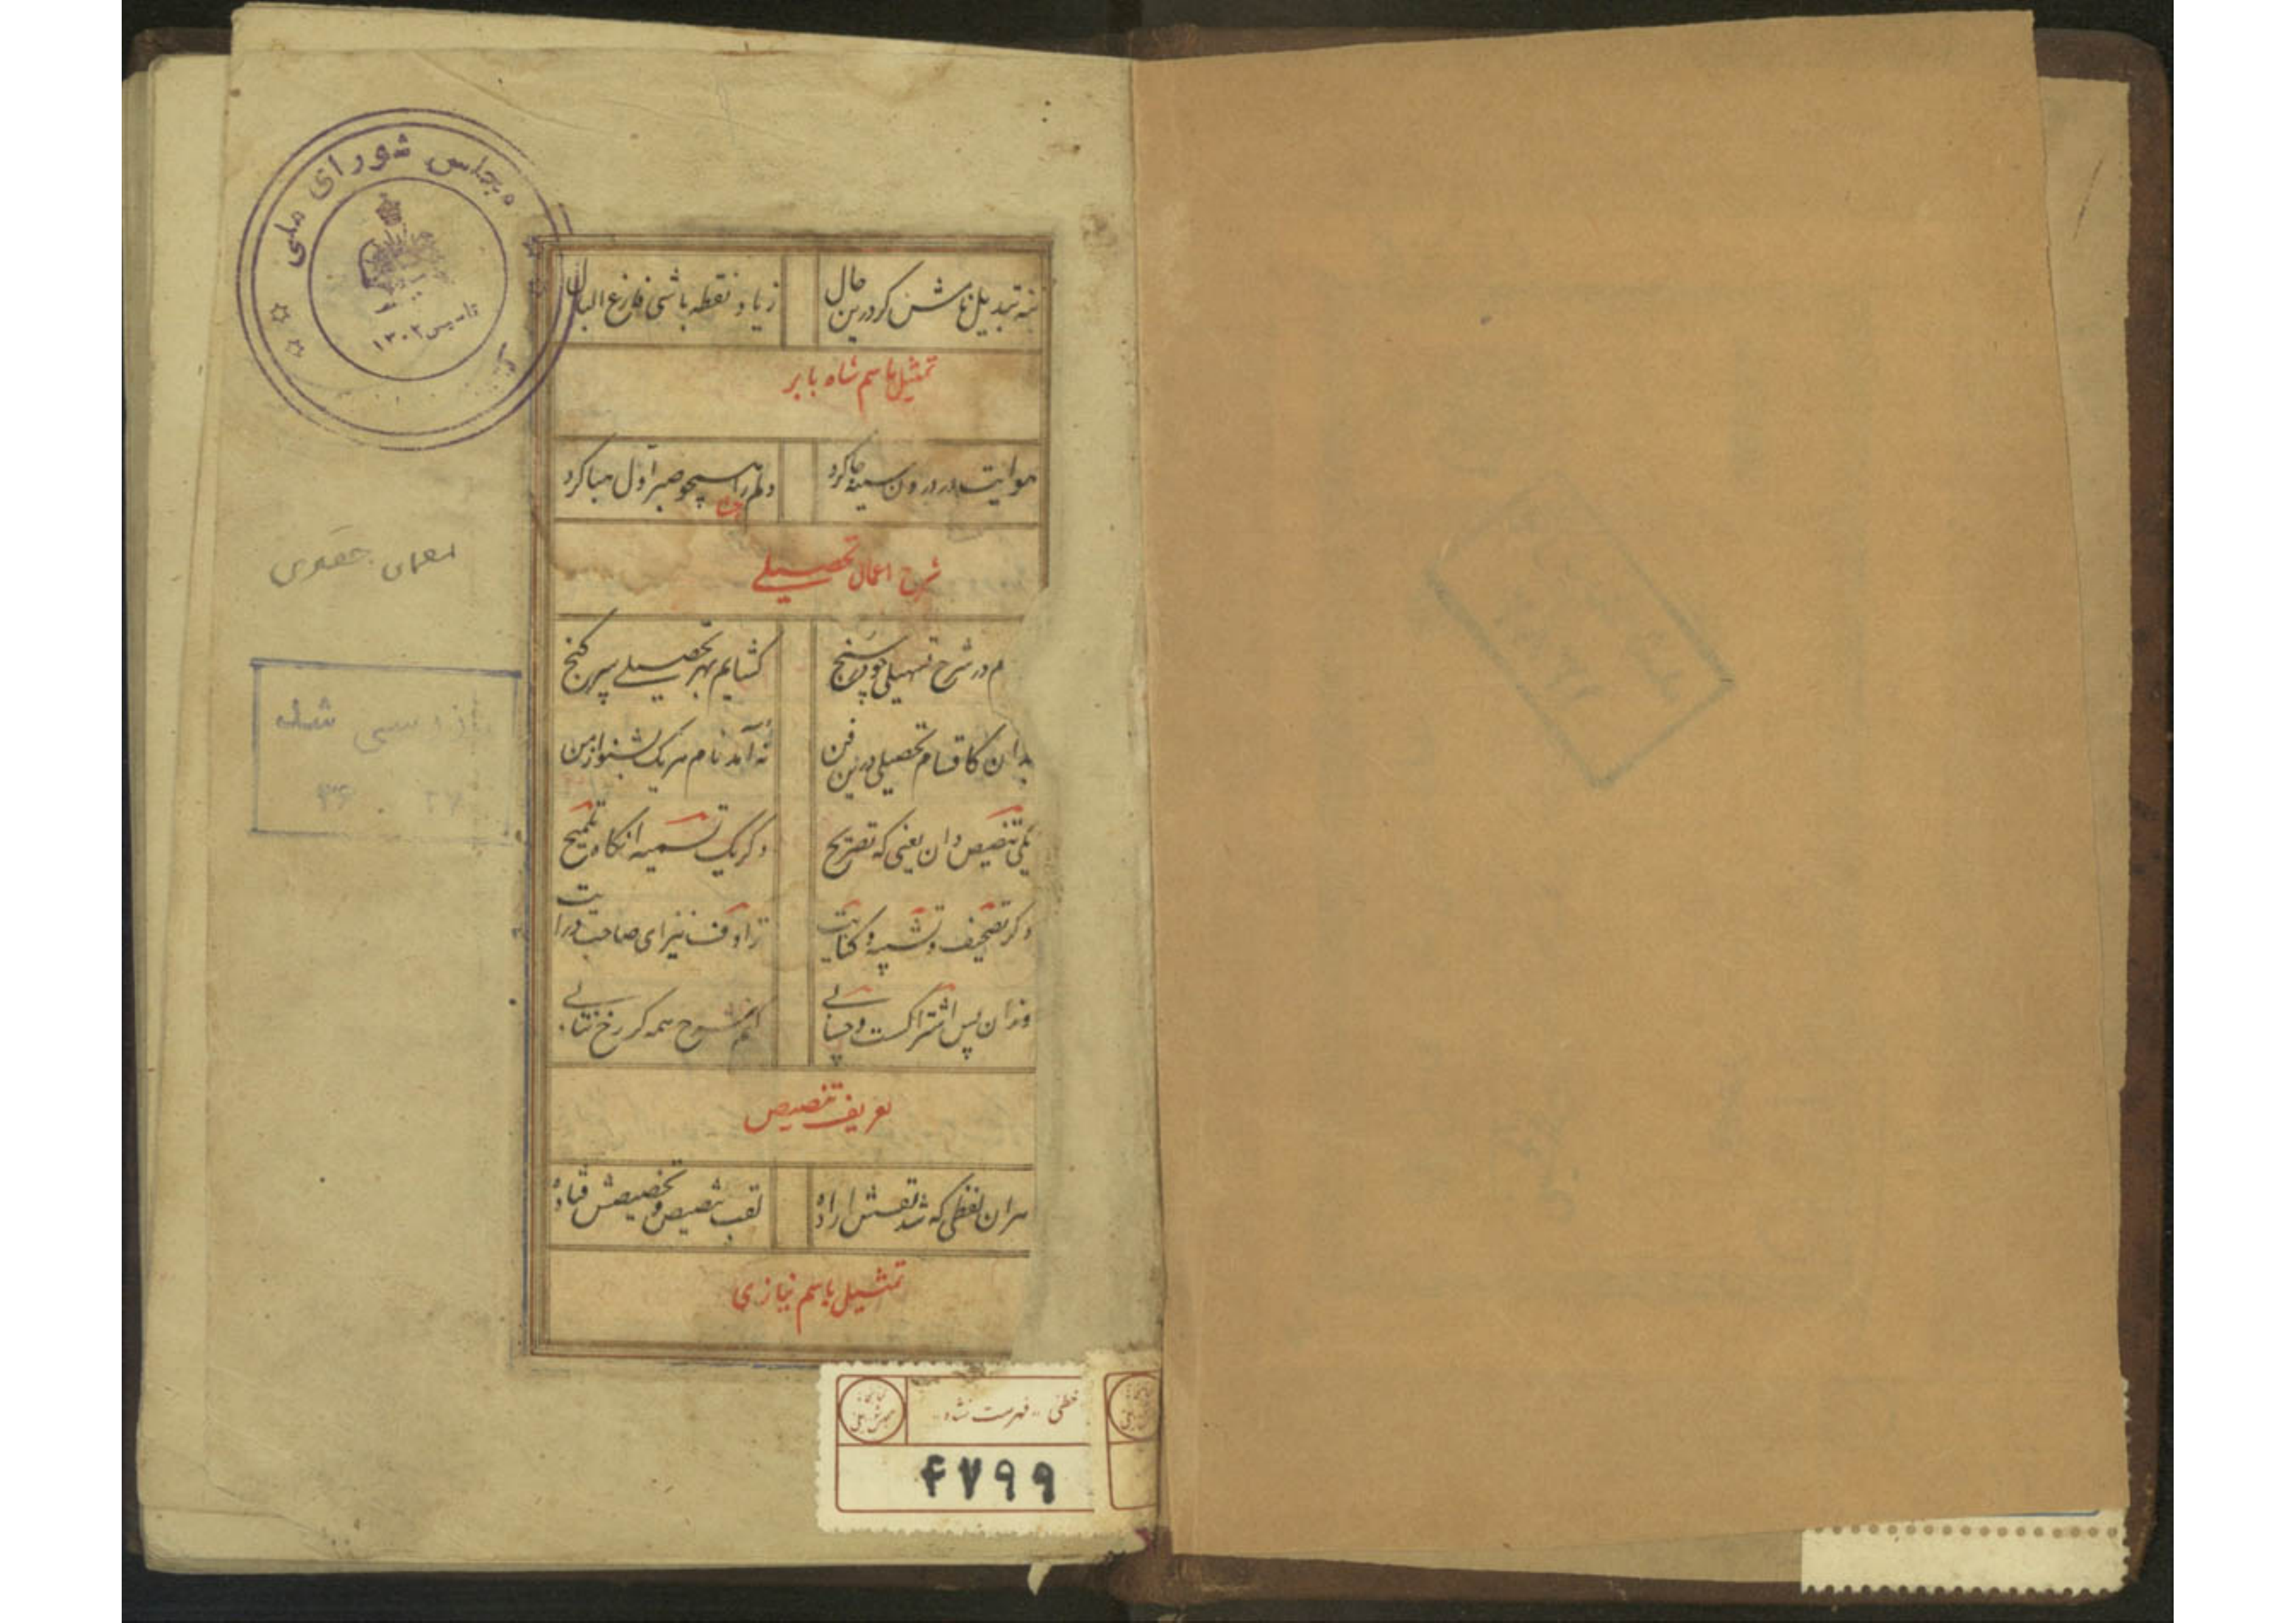 مجلس شورای ملی
تاسیس ۱۳۰۲
تبدیل حال زیاد و نقطه باشی فارغ البال
تمثیل باسم شاه بابر
هوایت در درون سینه جا کرد دلم را همچو صبر اول هبا کرد
شرح اعمال تحصیلی
م در شرح تسهیلی چو سنج گشایم بهر تحصیلی سر گنج
بدان کاقسام تحصیلی درین فن نه آمد نام هریک بشنو از من
یکی تنصیص دان یعنی که تصریح دگر یک تسمیه انگاه تلمیح
دگر تصحیف و تشبیه و کنایت ترادف نیز ای صاحب درایت
وزان پس اشتراکست و حسابی کنم شرح همه گر رخ نتابی
تعریف تنصیص
هران لفظی که شد نقشش اراده لقب تنصیص و تخصیصش فتاده
تمثیل باسم نیازی
معمای
بازرسی شد
۳۶ . ۲۷
خطی - فهرست نشده
۴۷۹۹